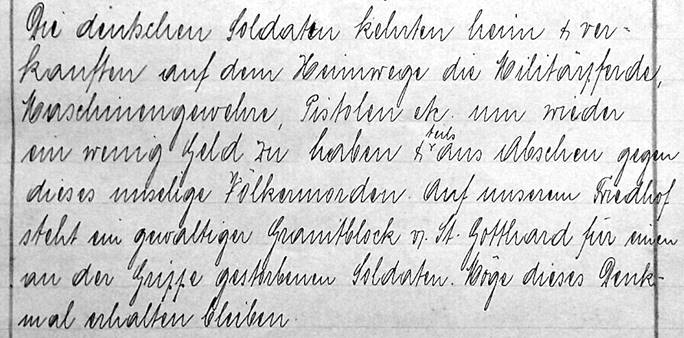 Die deutschen Soldaten kehrten heim & ver-
kauften auf dem Heimwege die Militärpferde,
Maschinengewehre, Pistolen etc. um wieder
ein wenig Geld zu haben & teils aus Abscheu gegen
dieses unselige Völkermorden. Auf unserem Friedhof
steht ein gewaltiger Granitblock v. St. Gotthard für einen
an der Grippe gestorbenen Soldaten. Möge dieses Denk-
mal erhalten bleiben.